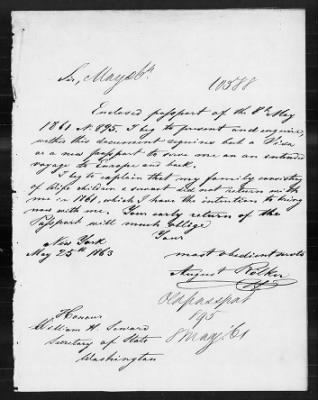 Sir,
10588
Enclosed passport of the 8th May
1861 N. 895. I beg to present and enquire,
wether this document requires but a Visa
or a new passport to serve me on an entended
voyage to Europe and back.
I beg to explain that my family consisting
of Wife children & servant did not return with
me in 1861, which I have the intention to bring
now with me. Your early return of the
Passport will much oblige
Your
New York
May 25th 1863
most obedient servt
August Rölker
Old passpat
895
8 May '61
Honour
William H. Seward
Secretary of State
Washington